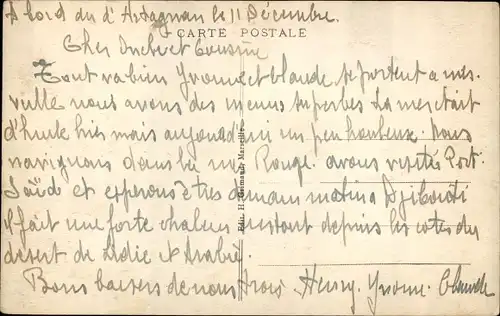 A bord du d'Artagnan le 11 Décembre.
CARTE POSTALE
Cher Oncle et Cousine
Tout va bien Yvonne et Claude se portent a mer-
veille nous avons des menus superbes La mer était
d'huile hier mais aujourd'hui un peu houleuse. nous
navigons dans la mer Rouge. avons visité Port.
Saïd et esperons être demain matin a Djibouti
il fait une forte chaleur surtout depuis les cotes du
désert de Lidie et Arabie
Bons baisers de nous trois. Henry. Yvonne. Claude
Edit. H. Grimaud, Marseille